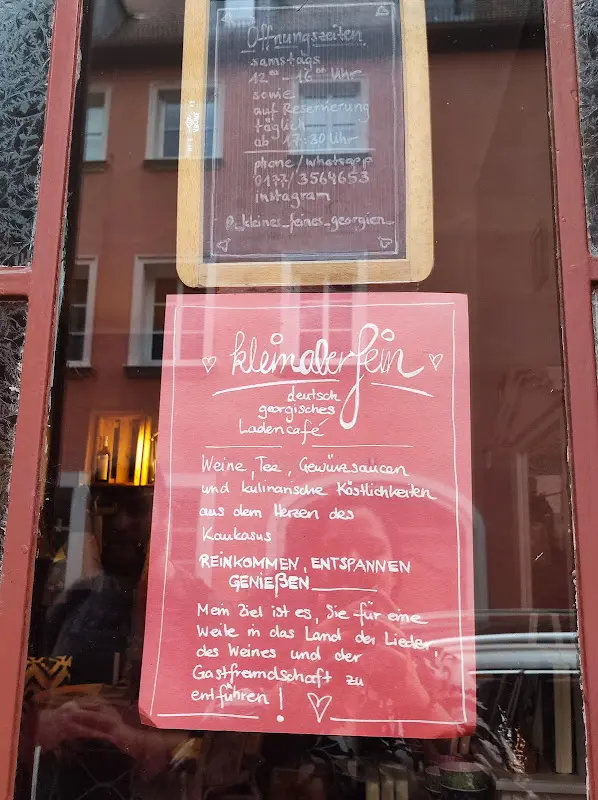 Öffnungszeiten
samstags
12⁰⁰ - 16⁰⁰ Uhr
sowie
auf Reservierung
täglich
ab 17:30 Uhr
phone/whatsapp
0177/3564653
instagram
@_kleines_feines_georgien_
kleinaberfein
deutsch
georgisches
Ladencafé
Weine, Tee, Gewürzsaucen
und kulinarische Köstlichkeiten
aus dem Herzen des
Kaukasus
REINKOMMEN, ENTSPANNEN
GENIEßEN
Mein Ziel ist es, Sie für eine
Weile in das Land der Lieder,
des Weines und der
Gastfreundschaft zu
entführen!